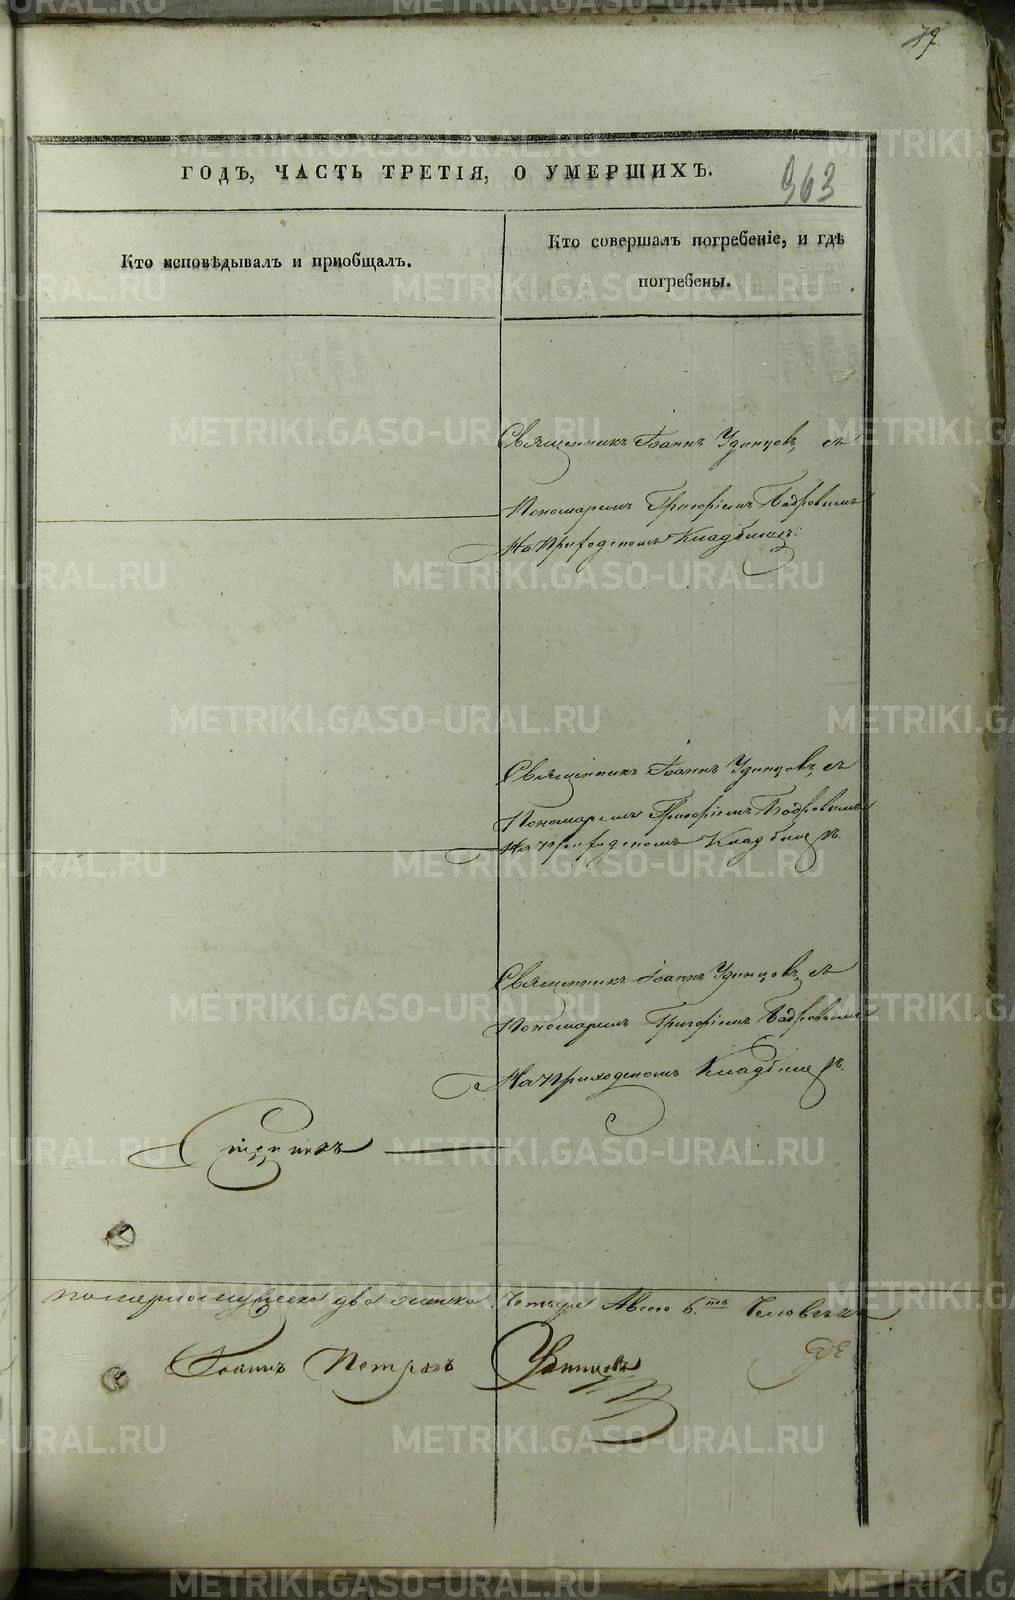 79
ГОДЪ, ЧАСТЬ ТРЕТІЯ, О УМЕРШИХЪ.
963
Кто исповѣдывалъ и приобщалъ.
Кто совершалъ погребеніе, и гдѣ
погребены.
Священникъ Іоаннъ Удинцовъ, съ
Пономаремъ Григоріемъ Бадровымъ
На Приходскомъ Кладбищѣ.
Священникъ Іоаннъ Удинцовъ, съ
Пономаремъ Григоріемъ Бадровымъ
На Приходскомъ Кладбищѣ.
Священникъ Іоаннъ Удинцовъ, съ
Пономаремъ Григоріемъ Бадровымъ
На Приходскомъ Кладбищѣ.
померло мужеска два женска Четыре Авсего 6.ть Человѣкъ
Іоаннъ Петровъ Удинцовъ
METRIKI.GASO-URAL.RU